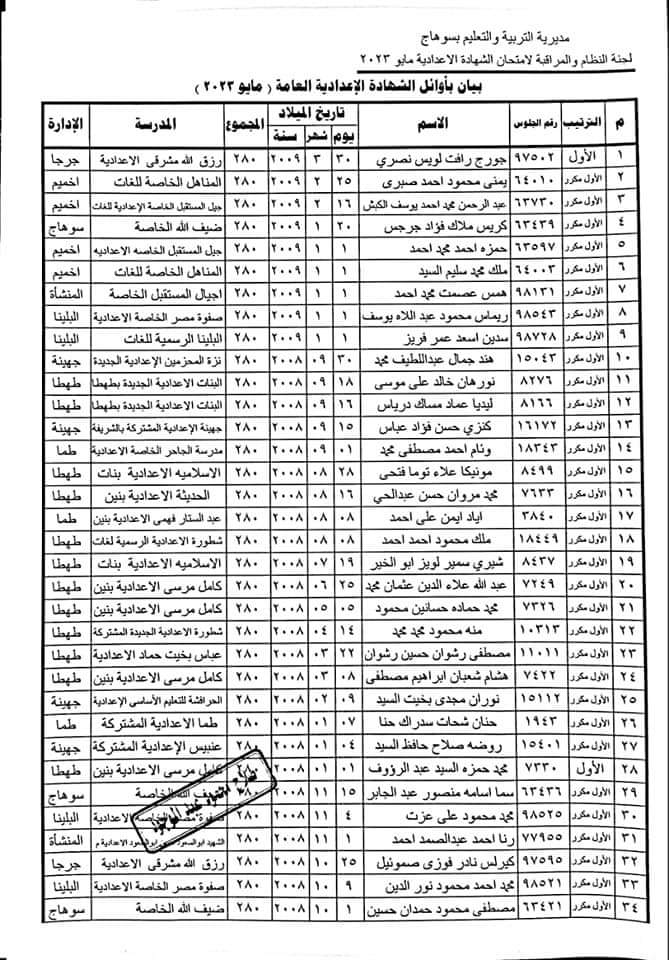 مديرية التربية والتعليم بسوهاج
لجنة النظام والمراقبة لامتحان الشهادة الاعدادية مايو ٢٠٢٣
بيان بأوائل الشهادة الإعدادية العامة ( مايو ٢٠٢٣ )
م الترتيب رقم الجلوس الاسم تاريخ الميلاد المجموع المدرسة الإدارة
يوم شهر سنة
١ الأول ٩٧٥٠٢ جورج رافت لويس نصري ٣٠ ٣ ٢٠٠٩ ٢٨٠ رزق الله مشرقى الاعدادية جرجا
٢ الأول مكرر ٦٤٠١٠ يمنى محمود احمد صبرى ٢٥ ٢ ٢٠٠٩ ٢٨٠ المناهل الخاصة للغات اخميم
٣ الأول مكرر ٦٣٧٣٠ عبد الرحمن محمد احمد يوسف الكبش ١٦ ٢ ٢٠٠٩ ٢٨٠ جيل المستقبل الخاصة الإعدادية للغات اخميم
٤ الأول مكرر ٦٣٤٣٩ كريس ملاك فؤاد جرجس ٢٠ ١ ٢٠٠٩ ٢٨٠ ضيف الله الخاصة سوهاج
٥ الأول مكرر ٦٣٥٩٧ حمزه احمد محمد احمد ١ ١ ٢٠٠٩ ٢٨٠ جيل المستقبل الخاصه الاعداديه اخميم
٦ الأول مكرر ٦٤٠٠٣ ملك محمد سليم السيد ١ ١ ٢٠٠٩ ٢٨٠ المناهل الخاصة للغات اخميم
٧ الأول مكرر ٩٨١٣١ همس عصمت محمد احمد ١ ١ ٢٠٠٩ ٢٨٠ اجيال المستقبل الخاصة المنشأة
٨ الأول مكرر ٩٨٥٤٣ ريماس محمود عبد اللاه يوسف ١ ١ ٢٠٠٩ ٢٨٠ صفوة مصر الخاصة الاعدادية البلينا
٩ الأول مكرر ٩٨٧٢٨ سدين اسعد عمر فريز ١ ١ ٢٠٠٩ ٢٨٠ البلينا الرسمية للغات البلينا
١٠ الأول مكرر ١٥٠٤٣ هند جمال عبداللطيف محمد ٣٠ ٠٩ ٢٠٠٨ ٢٨٠ نزة المحزمين الإعدادية الجديدة جهينة
١١ الأول مكرر ٨٢٧٦ نورهان خالد على موسى ١٨ ٠٩ ٢٠٠٨ ٢٨٠ البنات الاعدادية الجديدة بطهطا طهطا
١٢ الأول مكرر ٨١٦٦ ليديا عماد مساك درياس ١٦ ٠٩ ٢٠٠٨ ٢٨٠ البنات الاعدادية الجديدة بطهطا طهطا
١٣ الأول مكرر ١٦١٧٢ كنزي حسن فؤاد عباس ١٥ ٠٩ ٢٠٠٨ ٢٨٠ جهينة الإعدادية المشتركة بالشريفة جهينة
١٤ الأول مكرر ١٨٣٤٣ وئام احمد مصطفى محمد ٠١ ٠٩ ٢٠٠٨ ٢٨٠ مدرسة الجاحر الخاصة الاعدادية طما
١٥ الأول مكرر ٨٤٩٩ مونيكا علاء توما فتحى ٢٨ ٠٨ ٢٠٠٨ ٢٨٠ الاسلاميه الاعدادية بنات طهطا
١٦ الأول مكرر ٧٦٣٣ محمد مروان حسن عبدالحي ١٦ ٠٨ ٢٠٠٨ ٢٨٠ الحديثة الاعدادية بنين طهطا
١٧ الأول مكرر ٣٨٤٠ اياد ايمن على احمد ٠٨ ٠٨ ٢٠٠٨ ٢٨٠ عبد الستار فهمى الاعدادية بنين طما
١٨ الأول مكرر ١٨٤٤٩ ملك محمود احمد احمد ٠٨ ٠٨ ٢٠٠٨ ٢٨٠ شطورة الاعدادية الرسمية لغات طهطا
١٩ الأول مكرر ٨٤٣٧ شيري سمير لويز ابو الخير ١٩ ٠٧ ٢٠٠٨ ٢٨٠ الاسلاميه الاعدادية بنات طهطا
٢٠ الأول مكرر ٧٢٤٩ عبد الله علاء الدين عثمان محمد ٢٥ ٠٦ ٢٠٠٨ ٢٨٠ كامل مرسى الاعدادية بنين طهطا
٢١ الأول مكرر ٧٣٢٦ محمد حماده حسانين محمود ٠٥ ٠٥ ٢٠٠٨ ٢٨٠ كامل مرسى الاعدادية بنين طهطا
٢٢ الأول مكرر ١٠٣١٣ منه محمود محمد محمد ١٤ ٠٤ ٢٠٠٨ ٢٨٠ شطورة الاعدادية الجديدة المشتركة طهطا
٢٣ الأول مكرر ١١٠١١ مصطفى رشوان حسين رشوان ٢٢ ٠٣ ٢٠٠٨ ٢٨٠ عباس بخيت حماد الاعدادية طهطا
٢٤ الأول مكرر ٧٤٢٢ هشام شعبان ابراهيم مصطفى ٠٨ ٠٣ ٢٠٠٨ ٢٨٠ كامل مرسى الاعدادية بنين طهطا
٢٥ الأول مكرر ١٥١١٢ نوران مجدى بخيت السيد ٠٩ ٠٢ ٢٠٠٨ ٢٨٠ الحرافشة للتعليم الأساسى الإعدادية جهينة
٢٦ الأول مكرر ١٩٤٣ حنان شحات سدراك حنا ٠٧ ٠١ ٢٠٠٨ ٢٨٠ طما الاعدادية المشتركة طما
٢٧ الأول مكرر ١٥٤٠١ روضه صلاح حافظ السيد ٠٤ ٠١ ٢٠٠٨ ٢٨٠ عنبيس الإعدادية المشتركة جهينة
٢٨ الأول ٧٣٣٠ محمد حمزه السيد عبد الرؤوف ٠١ ٠١ ٢٠٠٨ ٢٨٠ كامل مرسى الاعدادية بنين طهطا
٢٩ الأول مكرر ٦٣٤٣٦ سما اسامه منصور عبد الجابر ١٥ ١١ ٢٠٠٨ ٢٨٠ ضيف الله الخاصة سوهاج
٣٠ الأول مكرر ٩٨٥٢٥ محمد محمود على عزت ٤ ١١ ٢٠٠٨ ٢٨٠ صفوة مصر الخاصة الاعدادية البلينا
٣١ الأول مكرر ٧٧٩٥٥ رنا احمد عبدالصمد احمد ١ ١١ ٢٠٠٨ ٢٨٠ الشهيد ابوالسعود ابوالسعود الاعدادية م المنشأة
٣٢ الأول مكرر ٩٧٥٩٥ كيرلس نادر فوزى صموئيل ٢٥ ١٠ ٢٠٠٨ ٢٨٠ رزق الله مشرقى الاعدادية جرجا
٣٣ الأول مكرر ٩٨٥٢١ محمد احمد محمود نور الدين ٩ ١٠ ٢٠٠٨ ٢٨٠ صفوة مصر الخاصة الاعدادية البلينا
٣٤ الأول مكرر ٦٣٤٢١ مصطفى محمود حمدان حسين ١ ١٠ ٢٠٠٨ ٢٨٠ ضيف الله الخاصة سوهاج